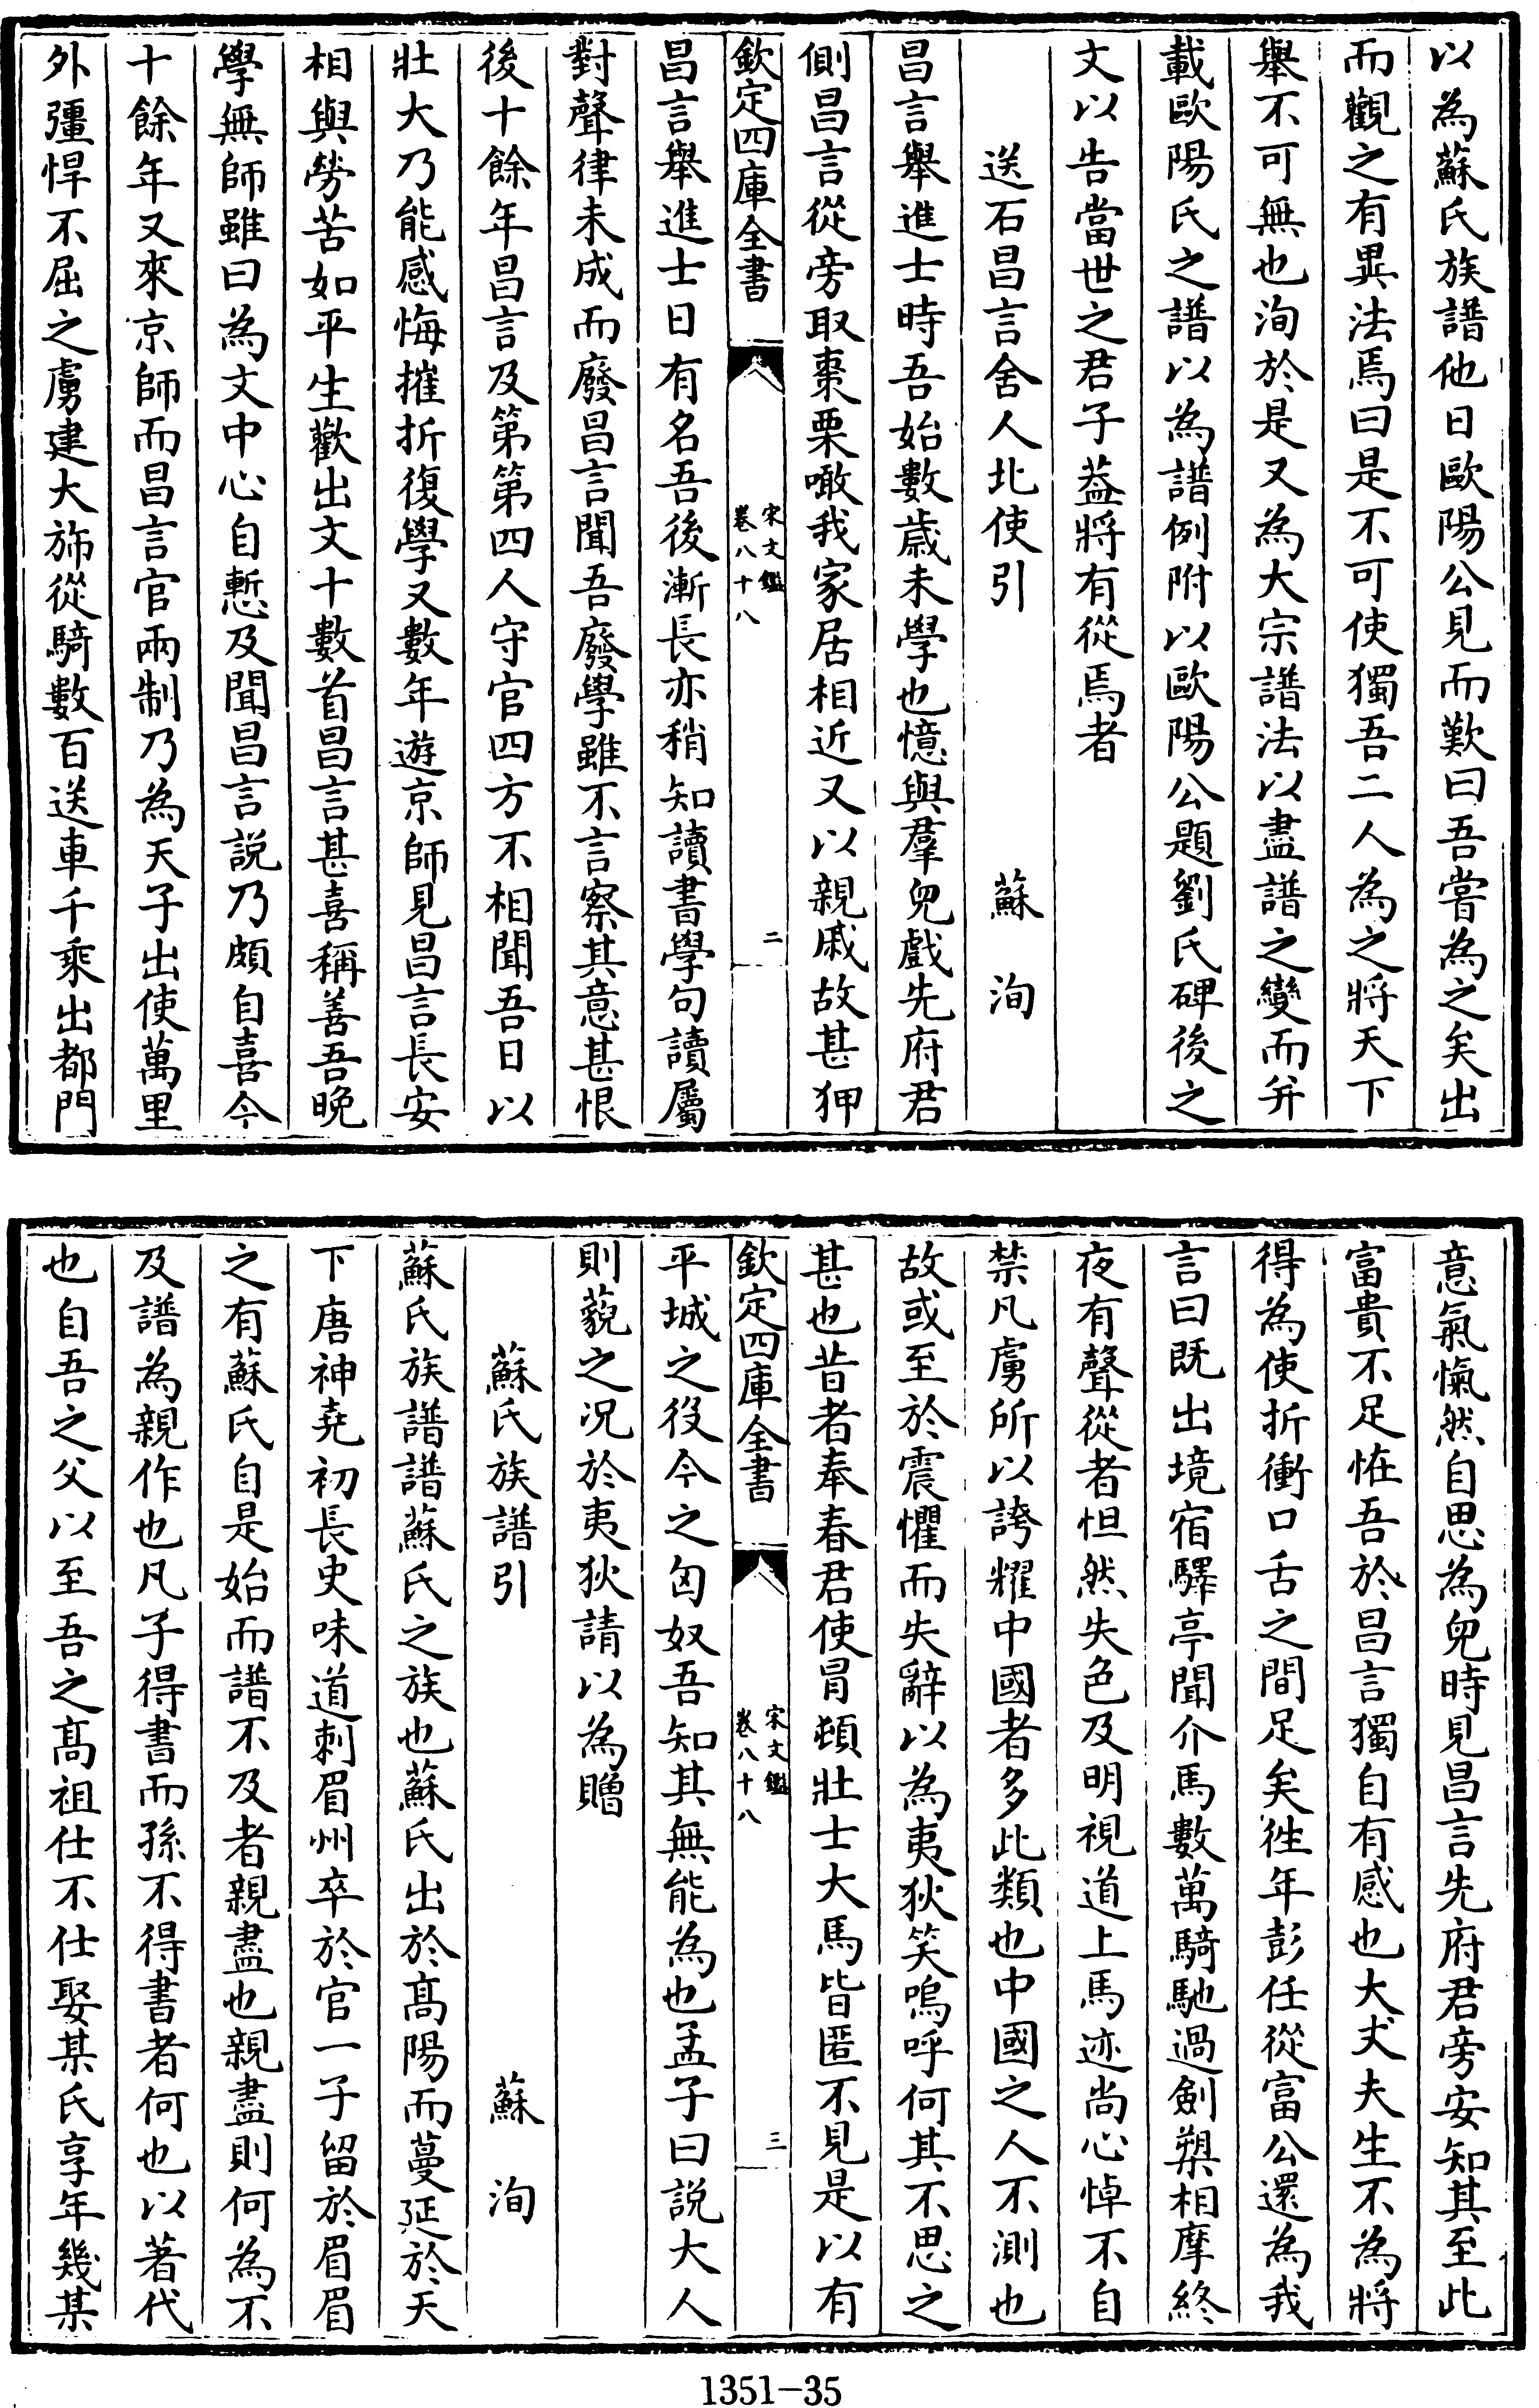 以為蘇氏族譜他日歐陽公見而歎曰吾嘗為之矣出
而觀之有異法焉曰是不可使獨吾二人為之將天下
舉不可無也洵於是又為大宗譜法以盡譜之變而并
載歐陽氏之譜以為譜例附以歐陽公題劉氏碑後之
文以告當世之君子葢將有從焉者
送石昌言舍人北使引 蘇洵
昌言舉進士時吾始數歲未學也憶與羣兒戲先府君
側昌言從旁取棗栗噉我家居相近又以親戚故甚狎
欽定四庫全書 宋文鑑 卷八十八 二
昌言舉進士日有名吾後漸長亦稍知讀書學句讀屬
對聲律未成而廢昌言聞吾廢學雖不言察其意甚恨
後十餘年昌言及第第四人守官四方不相聞吾日以
壯大乃能感悔摧折復學又數年遊京師見昌言長安
相與勞苦如平生歡出文十數首昌言甚喜稱善吾晚
學無師雖曰為文中心自慙及聞昌言說乃頗自喜今
十餘年又來京師而昌言官兩制乃為天子出使萬里
外彊悍不屈之虜建大斾從騎數百送車千乘出都門
意氣愾然自思為兒時見昌言先府君旁安知其至此
富貴不足怪吾於昌言獨自有感也大丈夫生不為將
得為使折衝口舌之間足矣徃年彭任從富公還為我
言曰既出境宿驛亭聞介馬數萬騎馳過劍槊相摩終
夜有聲從者怛然失色及明視道上馬迹尚心悼不自
禁凡虜所以誇耀中國者多此類也中國之人不測也
故或至於震懼而失辭以為夷狄笑嗚呼何其不思之
甚也昔者奉春君使冐頓壯士大馬皆匿不見是以有
欽定四庫全書 宋文鑑 卷八十八 三
平城之役今之匈奴吾知其無能為也孟子曰説大人
則藐之况於夷狄請以為贈
蘇氏族譜引 蘇洵
蘇氏族譜譜蘇氏之族也蘇氏出於髙陽而蔓延於天
下唐神堯初長史味道刺眉州卒於官一子留於眉眉
之有蘇氏自是始而譜不及者親盡也親盡則何為不
及譜為親作也凡子得書而孫不得書者何也以著代
也自吾之父以至吾之髙祖仕不仕娶某氏享年幾某
1351-35